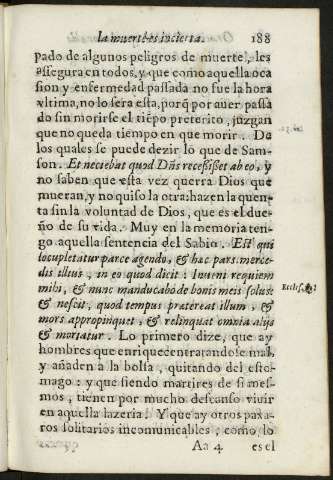 la muerte es incierta. 188
pado de algunos peligros de muerte, les
assegura en todos, y que como aquella oca
sion y enfermedad passada no fue la hora
vltima, no lo sera esta, porq̃ por auer passa
do sin morirse el tiẽpo preterito, juzgan
que no queda tiempo en que morir. De
los quales se puede dezir lo que de Sam-
son. Et nesciebat quod Dñs recessisset ab eo, y
no saben que esta vez querra Dios que
mueran, y no quiso la otra: hazen la quen-
ta sin la voluntad de Dios, que es el due-
ño de su vida. Muy en la memoria ten-
go aquella sentencia del Sabio. Est qui
locupletatur parce agendo, & hæc pars merce-
dis illius, in eo quod dicit: Inueni requiem
mihi, & nunc manducabo de bonis meis solus:
& nescit, quod tempus prætereat illum, &
mors appropinquet, & relinquat omnia alijs
& moriatur. Lo primero dize, que ay
hombres que enriquecen tratandose mal,
y añaden a la bolsa, quitando del esto-
mago: y que siendo martires de si mes-
mos, tienen por mucho descanso viuir
en aquella lazeria. Y que ay otros paxa-
ros solitarios incomunicables, como lo
Aa 4 es el
Eccles.